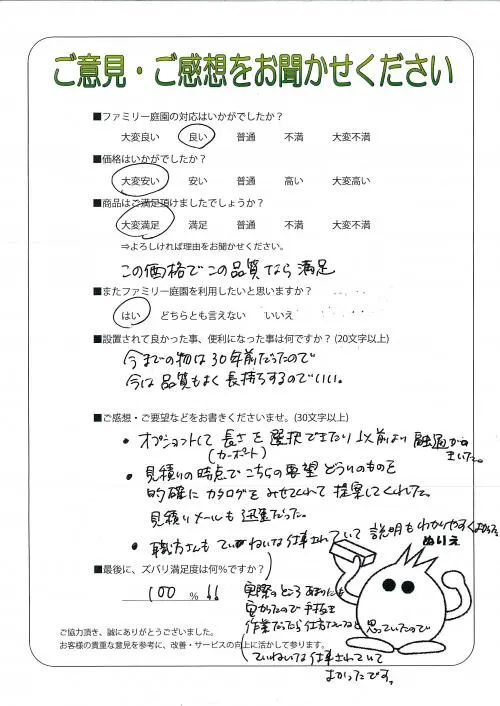 ご意見・ご感想をお聞かせください
■ファミリー庭園の対応はいかがでしたか？
大変良い 良い 普通 不満 大変不満
■価格はいかがでしたか？
大変安い 安い 普通 高い 大変高い
■商品はご満足頂けましたでしょうか？
大変満足 満足 普通 不満 大変不満
⇒よろしければ理由をお聞かせください。
この価格でこの品質なら満足
■またファミリー庭園を利用したいと思いますか？
はい どちらとも言えない いいえ
■設置されて良かった事、便利になった事は何ですか？(20文字以上)
今までの物は30年前だったので
今は品質もよく長持ちするのでいい。
■ご感想・ご要望などをお書きくださいませ。(30文字以上)
・オプションして長さを選択できたり以前より融通がきいた。
(カーポート)
・見積りの時点でこちらの要望どういうものを
的確にカタログをみせてくれて提案してくれた。
見積りメールも迅速だった。
・職方さんもていねいな仕事されていて説明もわかりやすくよかった
ぬりえ
■最後に、ズバリ満足度は何％ですか？
100 % !!
実際のところあまりにも
安かったので手抜き
作業だったら仕方ないと思っていたので
ていねいな仕事されていて
よかったです。
ご協力頂き、誠にありがとうございました。
お客様の貴重な意見を参考に、改善・サービスの向上に活かして参ります。